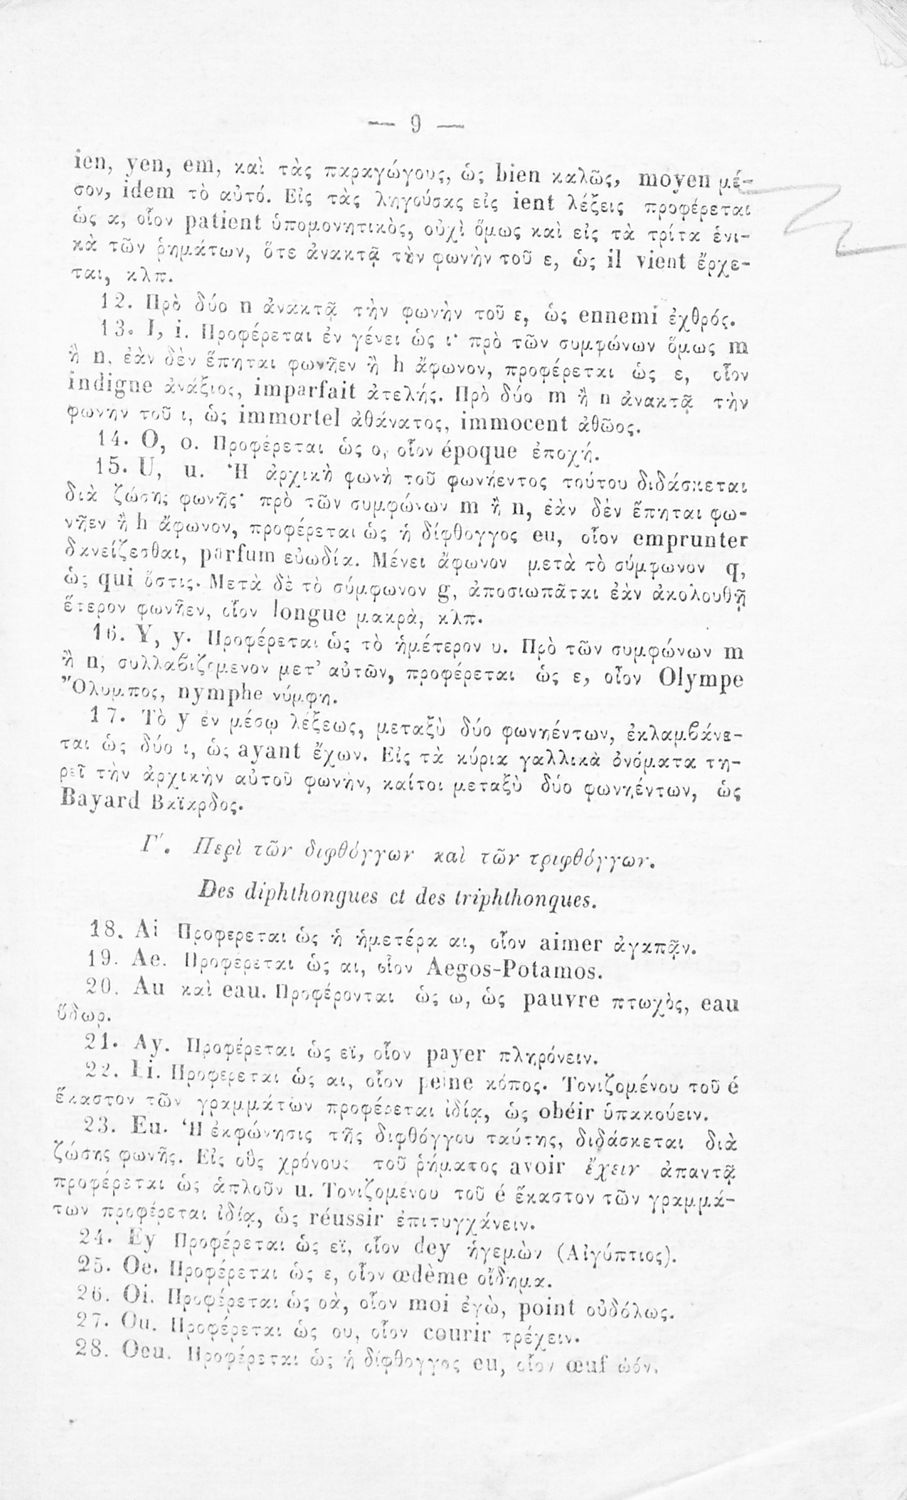 — 9 —
ien, yen, em, καὶ τὰς παραγώγους, ὡς bien καλῶς, moyen μέ-
σον, idem τὸ αὐτό. Εἰς τὰς ληγούσας εἰς ient λέξεις προφέρεται
ὡς α, οἷον patient ὑπομονητικὸς, οὐχὶ ὅμως καὶ εἰς τὰ τρίτα ἑνι-
κὰ τῶν ῥημάτων, ὅτε ἀνακτᾷ τὴν φωνὴν τοῦ ε, ὡς il vient ἔρχε-
ται, κλπ.
12. Πρὸ δύο n ἀνακτᾷ τὴν φωνὴν τοῦ ε, ὡς ennemi ἐχθρός.
13. I, i. Προφέρεται ἐν γένει ὡς ι· πρὸ τῶν συμφώνων ὅμως m
ἢ n, ἐὰν δὲν ἕπηται φωνῆεν ἢ h ἄφωνον, προφέρεται ὡς ε, οἷον
indigne ἀνάξιος, imparfait ἀτελής. Πρὸ δύο m ἢ n ἀνακτᾷ τὴν
φωνὴν τοῦ ι, ὡς immortel ἀθάνατος, immocent ἀθῶος.
14. O, o. Προφέρεται ὡς ο, οἷον époque ἐποχή.
15. U, u. Ἡ ἀρχικὴ φωνὴ τοῦ φωνήεντος τούτου διδάσκεται
διὰ ζώσης φωνῆς· πρὸ τῶν συμφώνων m ἢ n, ἐὰν δὲν ἕπηται φω-
νῆεν ἢ h ἄφωνον, προφέρεται ὡς ἡ δίφθογγος eu, οἷον emprunter
δανείζεσθαι, parfum εὐωδία. Μένει ἄφωνον μετὰ τὸ σύμφωνον q,
ὡς qui ὅστις. Μετὰ δὲ τὸ σύμφωνον g, ἀποσιωπᾶται ἐὰν ἀκολουθῇ
ἕτερον φωνῆεν, οἷον longue μακρὰ, κλπ.
16. Y, y. Προφέρεται ὡς τὸ ἡμέτερον υ. Πρὸ τῶν συμφώνων m
ἢ n, συλλαβιζόμενον μετ' αὐτῶν, προφέρεται ὡς ε, οἷον Olympe
Ὄλυμπος, nymphe νύμφη.
17. Τὸ y ἐν μέσῳ λέξεως, μεταξὺ δύο φωνηέντων, ἐκλαμβάνε-
ται ὡς δύο ι, ὡς ayant ἔχων. Εἰς τὰ κύρια γαλλικὰ ὀνόματα τη-
ρεῖ τὴν ἀρχικὴν αὐτοῦ φωνὴν, καίτοι μεταξὺ δύο φωνηέντων, ὡς
Bayard Βαϊαρδος.
Γ'. Περὶ τῶν διφθόγγων καὶ τῶν τριφθόγγων.
Des diphthongues et des triphthonques.
18. Ai Προφερεται ὡς ἡ ἡμετέρα αι, οἷον aimer ἀγαπᾷν.
19. Ae. Προφέρεται ὡς αι, οἷον Aegos-Potamos.
20. Au καὶ eau. Προφέρονται ὡς ω, ὡς pauvre πτωχὸς, eau
ὕδωρ.
21. Ay. Προφέρεται ὡς εϊ, οἷον payer πληρόνειν.
22. Ei. Προφέρεται ὡς αι, οἷον peine κόπος. Τονιζομένου τοῦ é
ἕκαστον τῶν γραμμάτων προφέρεται ἰδίᾳ, ὡς obéir ὑπακούειν.
23. Eu. Ἡ ἐκφώνησις τῆς διφθόγγου ταύτης, διδάσκεται διὰ
ζώσης φωνῆς. Εἰς οὓς χρόνους τοῦ ῥήματος avoir ἔχειν ἀπαντᾷ
προφέρεται ὡς ἁπλοῦν u. Τονιζομένου τοῦ é ἕκαστον τῶν γραμμά-
των προφέρεται ἰδίᾳ, ὡς réussir ἐπιτυγχάνειν.
24. Ey Προφέρεται ὡς εϊ, οἷον dey ἡγεμὼν (Αἰγύπτιος).
25. Oe. Προφέρεται ὡς ε, οἷον œdème οἴδημα.
26. Oi. Προφέρεται ὡς οὰ, οἷον moi ἐγὼ, point οὐδόλως.
27. Ou. Προφέρεται ὡς ου, οἷον courir τρέχειν.
28. Oeu. Προφέρεται ὡς ἡ δίφθογγος eu, οἷον œuf ὠόν.